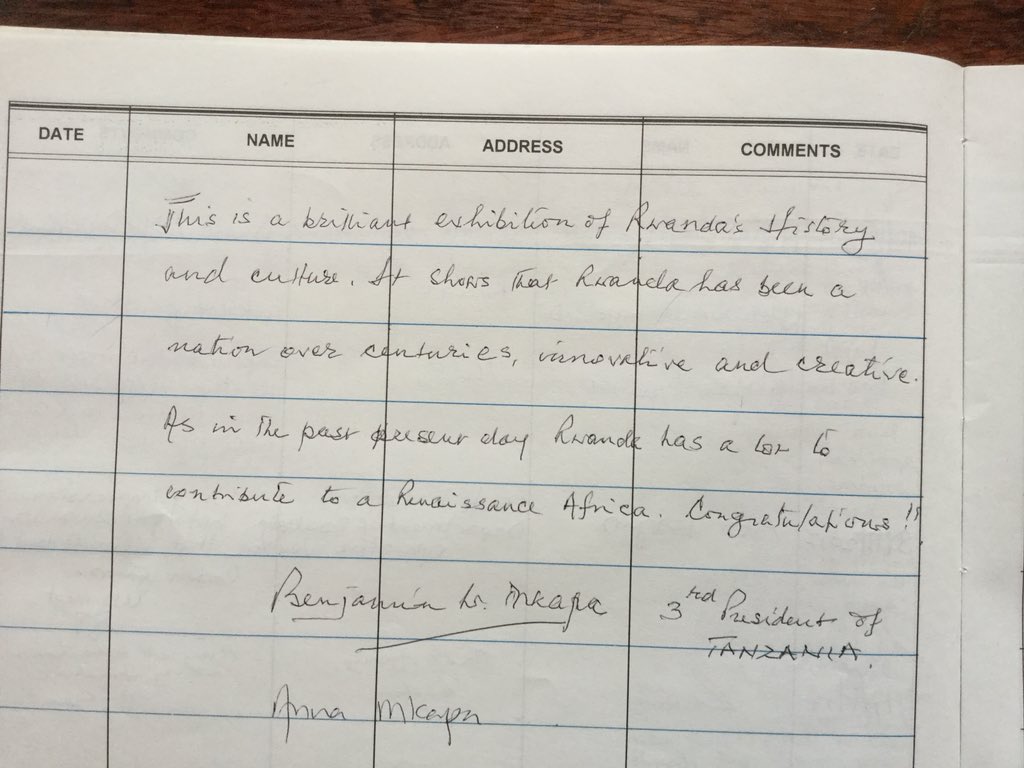 DATE NAME ADDRESS COMMENTS
This is a brilliant exhibition of Rwanda's History
and culture. It shows that Rwanda has been a
nation over centuries, innovative and creative.
As in the past present day Rwanda has a lot to
contribute to a Renaissance Africa. Congratulations!!
Benjamin W. Mkapa 3rd President of
TANZANIA.
Anna Mkapa